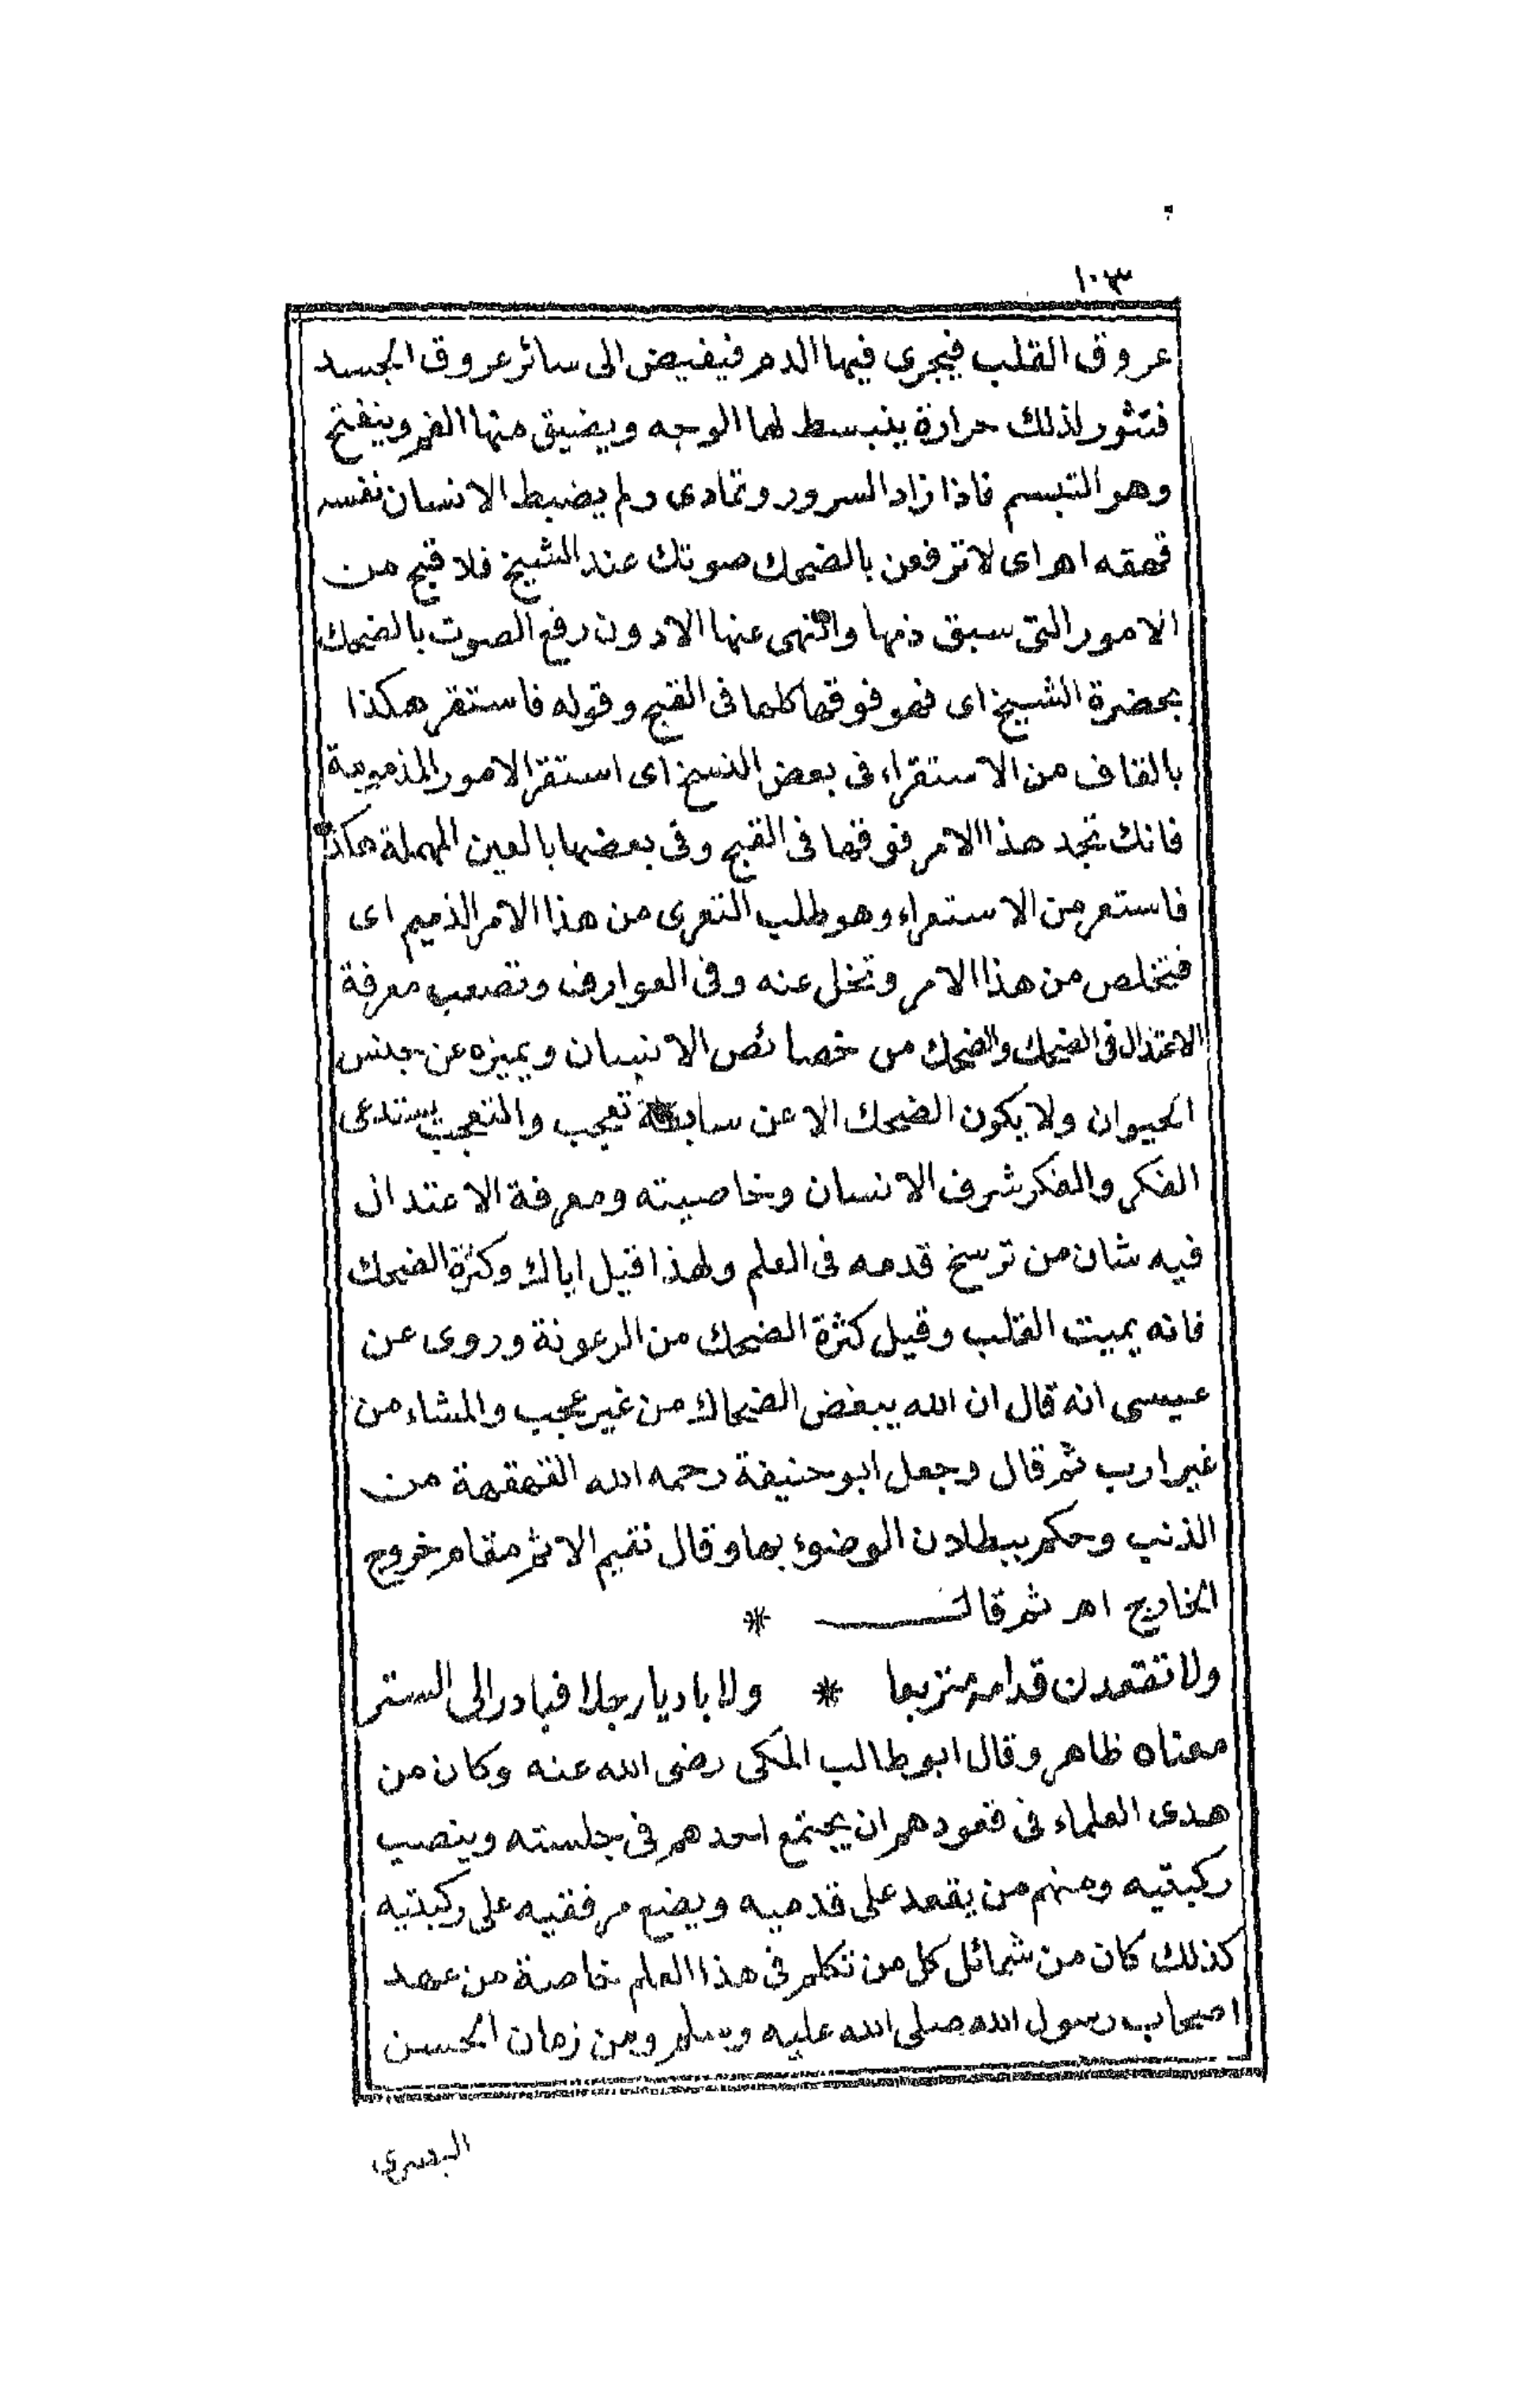 ١٠٣
عروق القلب فيجرى فيها الدم فيفيض الى سائر عروق الجسد
فتثور لذلك حرارة ينبسط لها الوجه ويضيق منها الفم وينفتح
وهو التبسم فاذا زاد السرور وتمادى ولم يضبط الانسان نفسه
قهقه اهـ اى لا ترفعن بالضحك صوتك عند الشيخ فلا قبح من
الامور التى سبق ذمها والنهى عنها الادون رفع الصوت بالضحك
بحضرة الشيخ اى فهو فوقها كلها فى القبح وقوله فاستقر هكذا
بالقاف من الاستقراء فى بعض النسخ اى استقر الامور المذمومة
فانك تجد هذا الامر فوقها فى القبح وفى بعضها بالعين المهملة هكذا
فاستعر من الاستعراء وهو طلب التعرى من هذا الامر الذميم اى
فتخلص من هذا الامر وتخل عنه وفى العوارف وتصعب معرفة
الاعتدال فى الضحك والضحك من خصائص الانسان ويميزه عن جنس
الحيوان ولا يكون الضحك الا عن سابقة تعجب والتعجب يستدعى
الفكر والفكر شرف الانسان وخاصيته ومعرفة الاعتدال
فيه شان من ترسخ قدمه فى العلم ولهذا قيل اياك وكثرة الضحك
فانه يميت القلب وقيل كثرة الضحك من الرعونة وروى عن
عيسى انه قال ان الله يبغض الضحاك من غير عجب والمشاء من
غير ارب ثم قال وجعل ابو حنيفة رحمه الله القهقهة من
الذنب وحكم ببطلان الوضوء بها وقال نقيم الاثم مقام خروج
الخارج اهـ ثم قال *
ولا تقعدن قدامه متربعا * ولا باديا رجلا فبادر الى الستر
معناه ظاهر وقال ابو طالب المكى رضى الله عنه وكان من
هدى العلماء فى قعودهم ان يجتمع احدهم فى جلسته وينصب
ركبتيه ومنهم من يقعد على قدميه ويضع مرفقيه على ركبتيه
كذلك كان من شمائل كل من تكلم فى هذا العلم خاصة من عهد
اصحاب رسول الله صلى الله عليه وسلم ومن زمان الحسن
البصرى